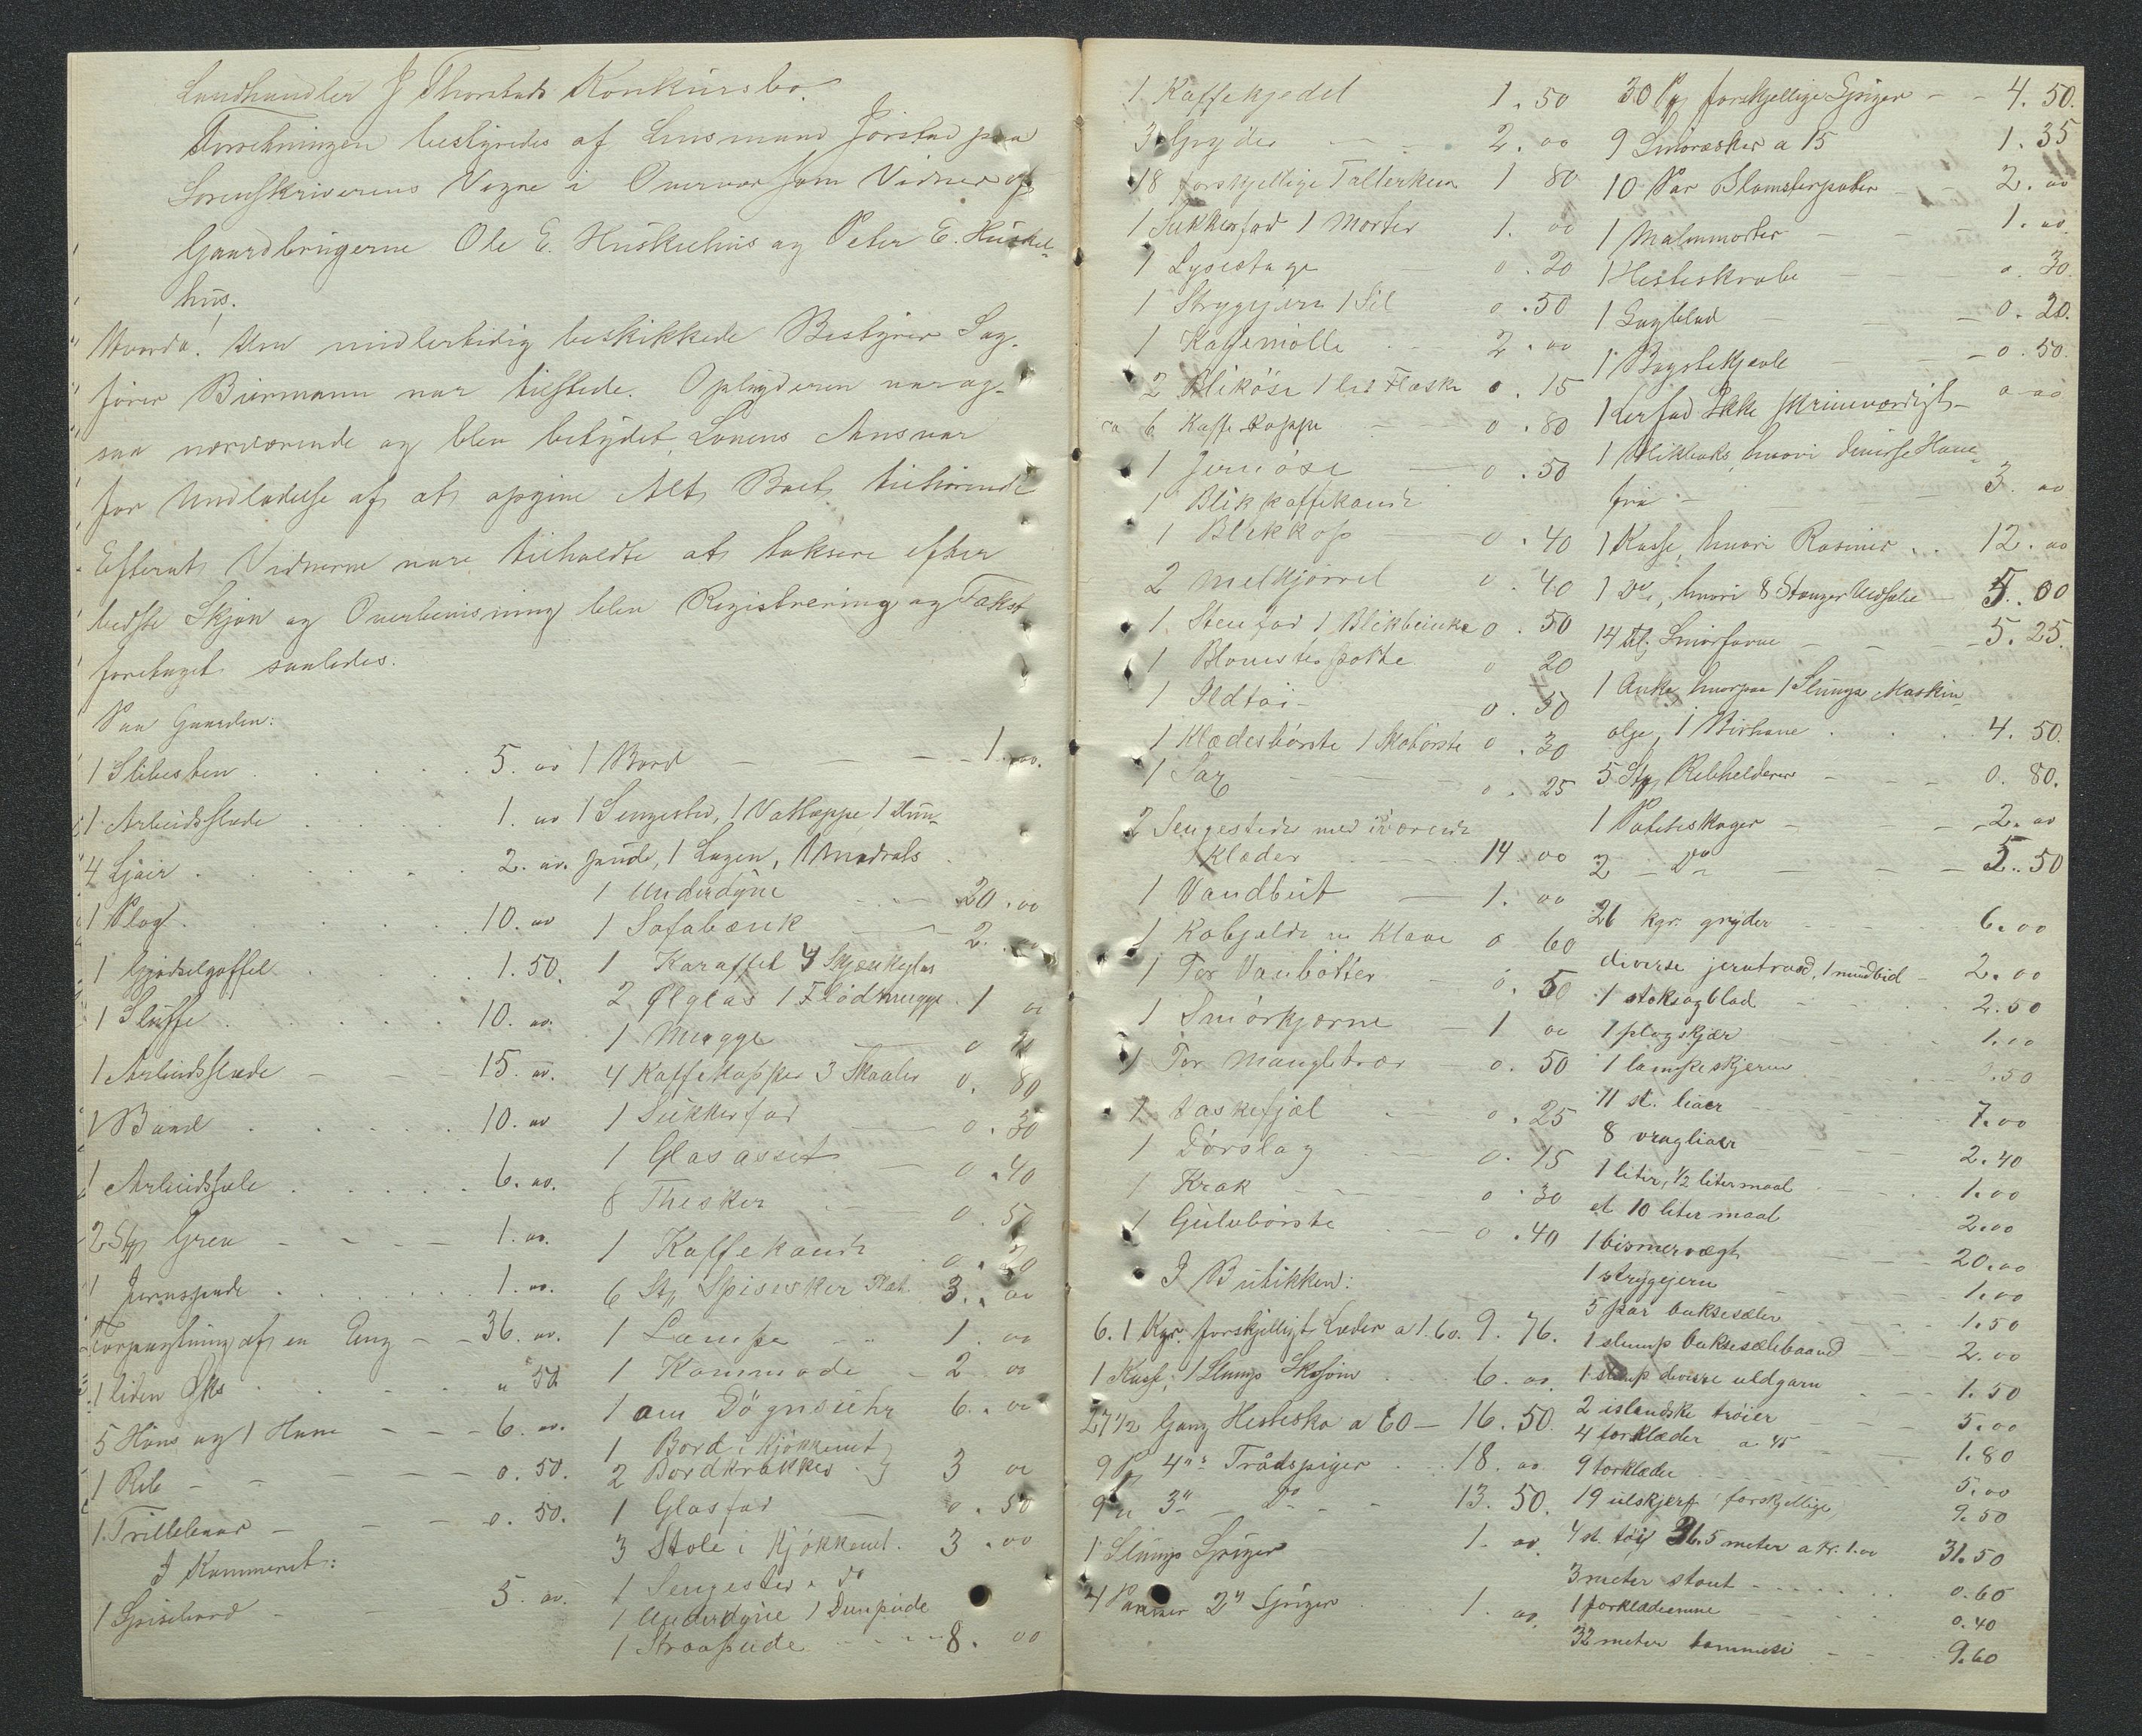 Landhandler J Thorstads Konkursbo.
Forretningen bestyredes af Lensmand Jørstad paa
Sorenskriverens Vegne i Overvær som Vidner af
Gaardbrugerne Ole E. Huskelhus og Peter E. Huskel-
hus.
Hvorda! Den midlertidig beskikkede Bestyrer Sag-
fører Biermann var tilstede. Opbyderen var og-
saa nærværende og blev betydet Lovens Ansvar
for Undladelse af at opgive Alt Boet tilhørende
Efterat Vidnerne vare tilholdte at taksere efter
bedste Skjøn og Overbevisning blev Registrering og Takst
foretaget saaledes.
Paa Gaarden:
1 Slibesten 5. 00
1 Arbeidsslæde 1. 00
4 Ljaaer 2. 00
1 Plog 10. 00
1 Gjødselgaffel 1.50.
1 Sluffe 10. 00.
1 Arbeidsslæde 15. 00.
1 Baad 10. 00
1 Arbeidssele 6. 00.
2 Stk Greb 1. 00.
1 Jernspade 1. 00.
Forpagtning af en Eng 36. 00.
1 liden Øks " 50
5 Høns og 1 Hane 6. 00.
1 Reb 0. 50.
1 Trillebaar 0. 50.
I Kammeret:
1 Spisebord 5. 00.
1 Bord 1. 00.
1 Sengested, 1 Vattæppe 1 Dun-
pude, 1 Lagen, 1 Madrats
1 Underdyne 20. 00
1 Sofabænk 2. 00
1 Karaffel 4 Skjænkeglas
2 Ølglas 1 Flødemugge 1 00
1 Mugge
4 Kaffekopper 3 Skaaler 0. 80
1 Sukkerfad 0. 30
1 Glasasset 0.40
8 Thesker 0. 50
1 Kaffekande 0. 20
6 Stk Spiseskeer Plet. 3. 00
1 Lampe 1. 00
1 Kommode 2 00
1 am Døgnsuhr 6. 00
1 Bord i Kjøkkenet
2 Bordkrakker 3 00
1 Glasfad 0. 50
3 Stole i Kjøkkenet. 3.00
1 Sengested do
1 Underdyne 1 Dunpude
1 Straapude 8. 00
1 Kaffekjedel 1. 50
3 Gryder 2. 00
18 forskjellige Tallerkener 1 80
1 Sukkerfad 1 Morter 1. 00
1 Lysestage 0. 20
1 Strygejern 1 Sil 0.50
1 Kaffemølle 2.00
2 Blikøse 1 lid Flaske 0. 15
6 Kaffekoppe 0.80
1 Jernøse 0.50
1 Blikkaffekande
1 Blikkop 0.40
2 Melkjørrel 0.40
1 Stenfad 1 Blikbøinke 0. 50
1 Blomsterpotte 0 20
1 Ildtøi 0. 50
1 Klædesbørste 1 Skobørste 0.30
1 Sax 0. 25
2 Sengesteder med iværende
Klæder 14 00
1 Vandbut 1. 00
1 Kobjelde m Klave 0 60
1 Par Vanbøtter 0. 50
1 Smørkjærne 1 00
1 Par Mangletrær 0. 50
1 Vaskefjæl 0.25
1 Dørslag 0. 15
1 Krak 0.30
1 Gulvbørste 0.40
I Butikken:
6.1 Kgr. forskjelligt Læder a 1.60. 9. 76.
1 Kasse, 1 Slump Skosøm 6. 00.
27 1/2 Gang Hestesko a 60 16.50.
9 Pk 4" Trådspiger 18. 00.
9 " 3" Do 13. 50.
1 Slump Spiger 1. 00
4 Pakker 2" Spiger 1. 00
30 Pk forskjellige Spiger 4. 50.
9 Smøræsker a 15 1. 35
10 Par Blomsterpotter 2. 00
1 Malmmorter 1. 00.
1 Hesteskrabe 0. 30.
1 Sagblad 0. 20.
1 Bagstekjevle 0. 50.
1 Lerfad Ikke skriveværdigt 0 00
1 Blikboks, hvori diverse Have-
frø 3. 00
1 Kasse, hvori Rosiner 12. 00
1 Do, hvori 8 Stanger Uldsæbe 5. 00
14 Stk Smørfarve 5. 25.
1 Anker, hvorpaa 1 Slump Maskin-
olje, 1 Birhane 4. 50.
5 Stk Rebholdere 0. 80.
1 Potteskager 2. 00
2 Do 5. 50
26 kgr. gryder 6.00
diverse jerntraad, 1 mundbid 2.00
1 stoksagblad 2.50
1 plogskjær 1.00
1 lampeskjerm 0.50
11 st. liaer 7.00
8 vragliaer 2.40
1 liter, 1/2 litermaal 1.00
et 10 liter maal 2.00
1 bismervægt 20.00
1 strygejern 1.00
5 par buksesæler 1.50
1 slump buksesælebaand 2.00
1 slump diverse uldgarn 1.50
2 islandske trøier 5.00
4 forklæder a 45 1.80
9 torklæder 5.00
19 ulskjerf forskjellige 9.50
4 st. tøi 31.5 meter a kr. 1.00 31.50
3 meter stout 0.60
1 forklædeemne 0.40
32 meter bommesi 9.60